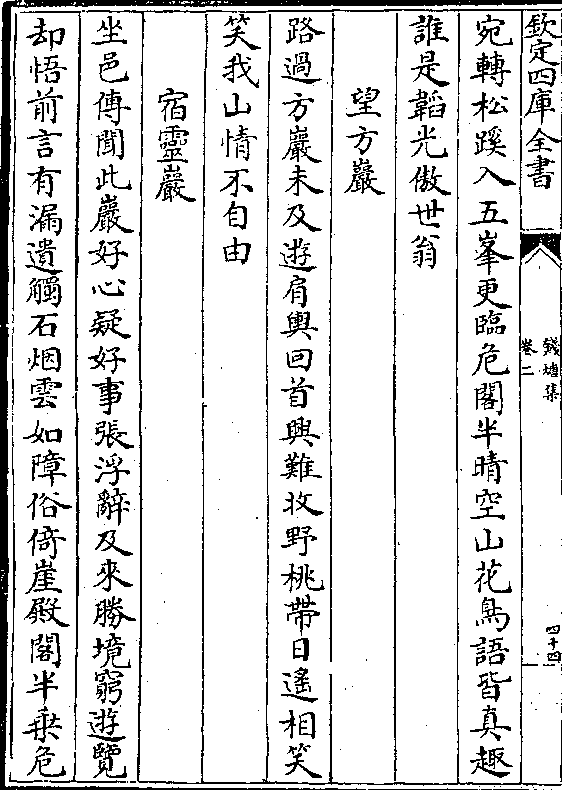 欽定四庫全書
錢塘集
卷二
四十四
宛轉松蹊入五峯更臨危閣半晴空山花鳥語皆真趣
誰是韜光傲世翁
望方巖
路過方巖未及遊肩輿回首興難收野桃帶日遙相笑
笑我山情不自由
宿靈巖
坐邑傳聞此巖好心疑好事張浮辭及來勝境窮遊覽
却悟前言有漏遺觸石烟雲如障俗倚崖殿閣半乗危